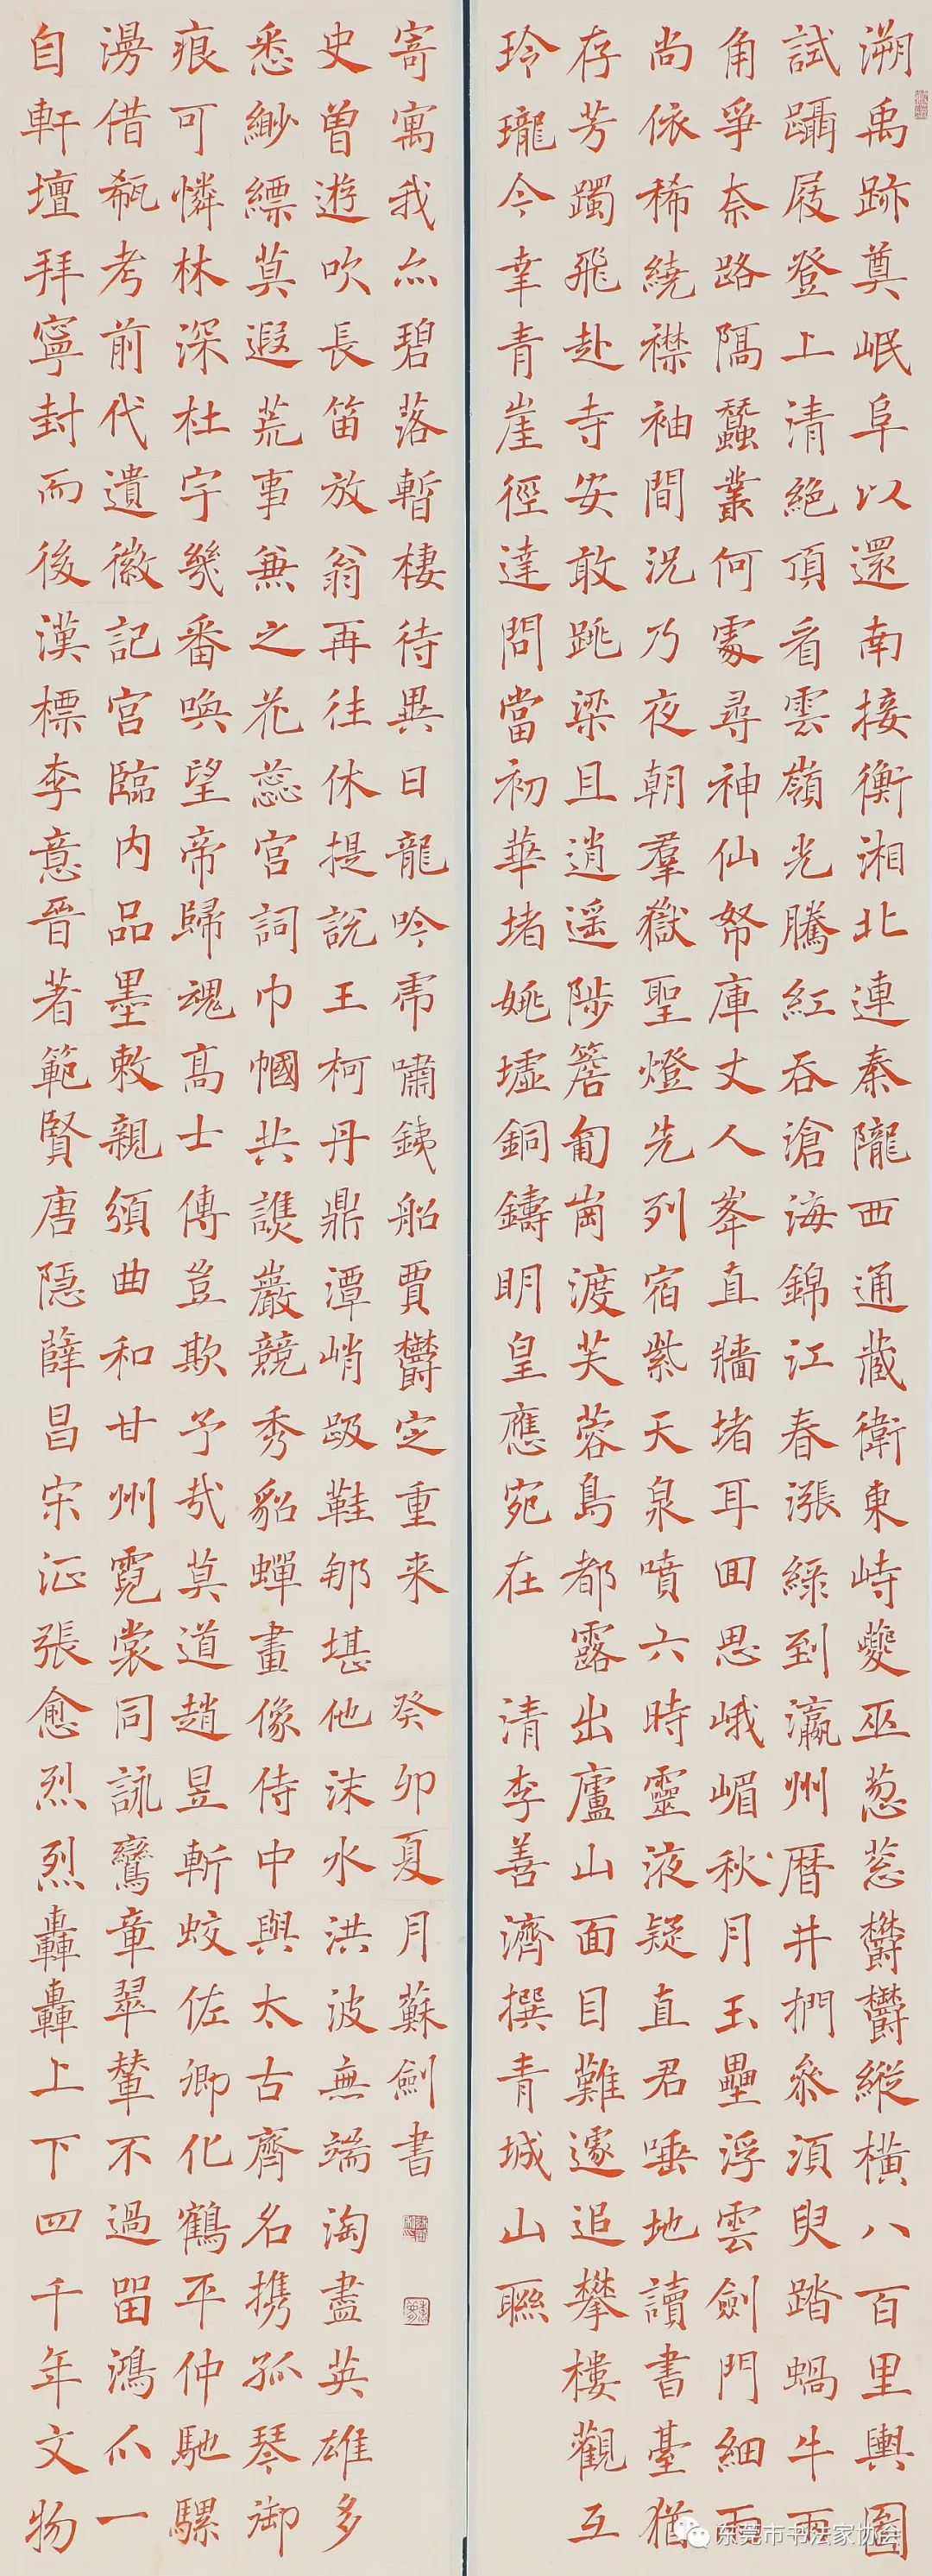 溯禹跡奠岷阜以還南接衡湘北連秦隴西通藏衛東峙夔巫葱葱鬱鬱縱橫八百里輿圖
試躡屐登上清絕頂看雲嶺光騰紅吞滄海錦江春漲綠到瀛州曆井捫參須臾踏蝸牛兩
角爭奈路隔蠶叢何處尋神仙帑庫丈人峯直牆堵耳回思峨嵋秋月玉壘浮雲劍門細雨
尚依稀繞襟袖間況乃夜朝羣嶽聖燈先列宿紫天泉噴六時靈液疑直君唾地讀書臺猶
存芳躅飛赴寺安敢跳梁且逍遥陟筶匐崗渡芙蓉島都露出廬山面目難遽追攀樓觀互
玲瓏今幸青崖徑達問當初華堵姚墟銅鑄明皇應宛在
清李善濟撰青城山聯
自軒壇拜寧封而後漢標李意晉著範賢唐隱薛昌宋征張愈烈烈轟轟上下四千年文物
漫借瓻考前代遺徽記宮臨内品墨敕親頒曲和甘州霓裳同詠鸞章翠輦不過留鴻爪一
痕可憐林深杜宇幾番喚望帝歸魂高士傳豈欺予哉莫道趙昱斬蛟佐卿化鶴平仲馳騾
悉緲縹莫遐荒事兼之花蕊宮詞巾幗共譙巖競秀貂蟬畫像侍中與太古齊名携孤琴御
史曾遊吹長笛放翁再往休提說王柯丹鼎潭峭趿鞋那堪他沫水洪波無端淘盡英雄多
寄寓我亦碧落暫棲待異日龍吟虎嘯鐵船賈鬱定重来
癸卯夏月蘇劍書
东莞市书法家协会